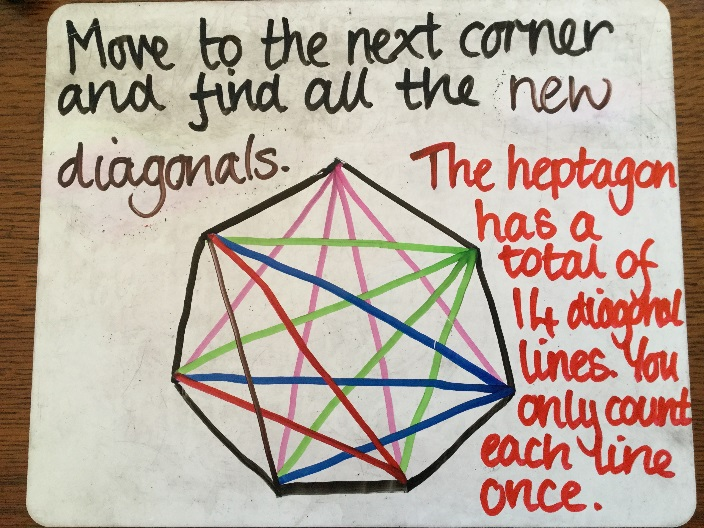 Move to the next corner
and find all the new
diagonals.
The heptagon
has a
total of
14 diagonal
lines. You
only count
each line
once.